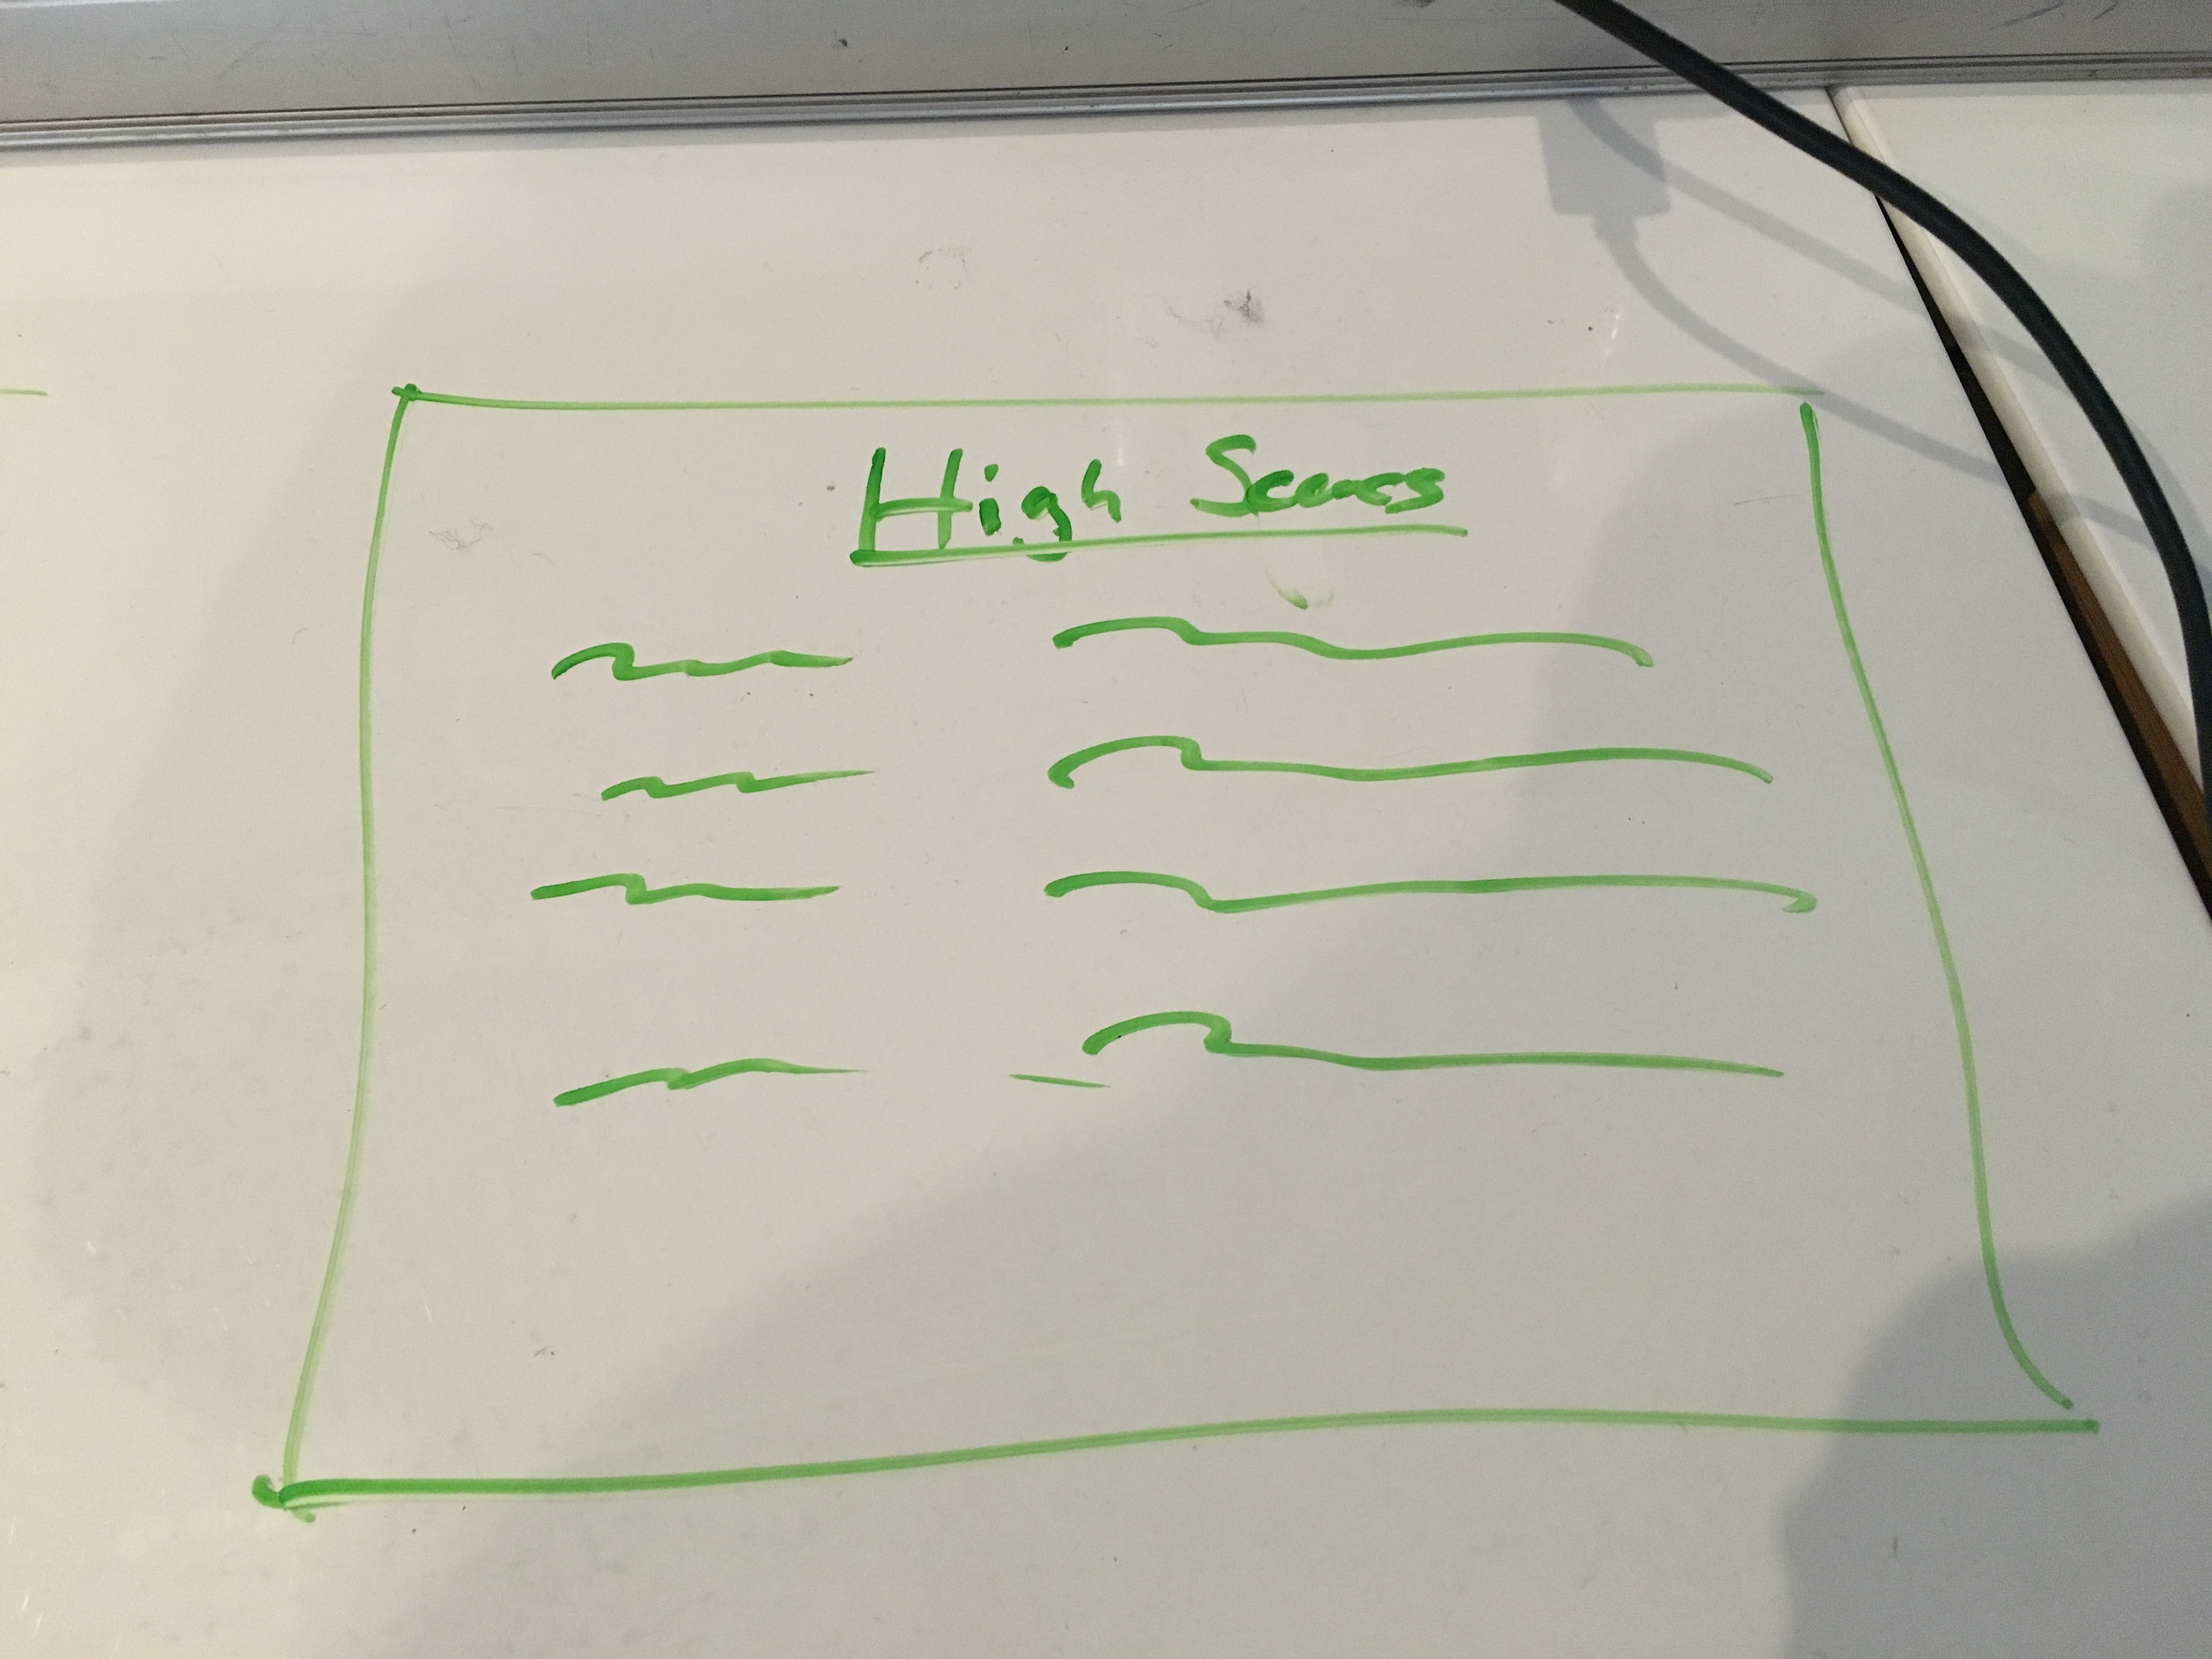 High Scores